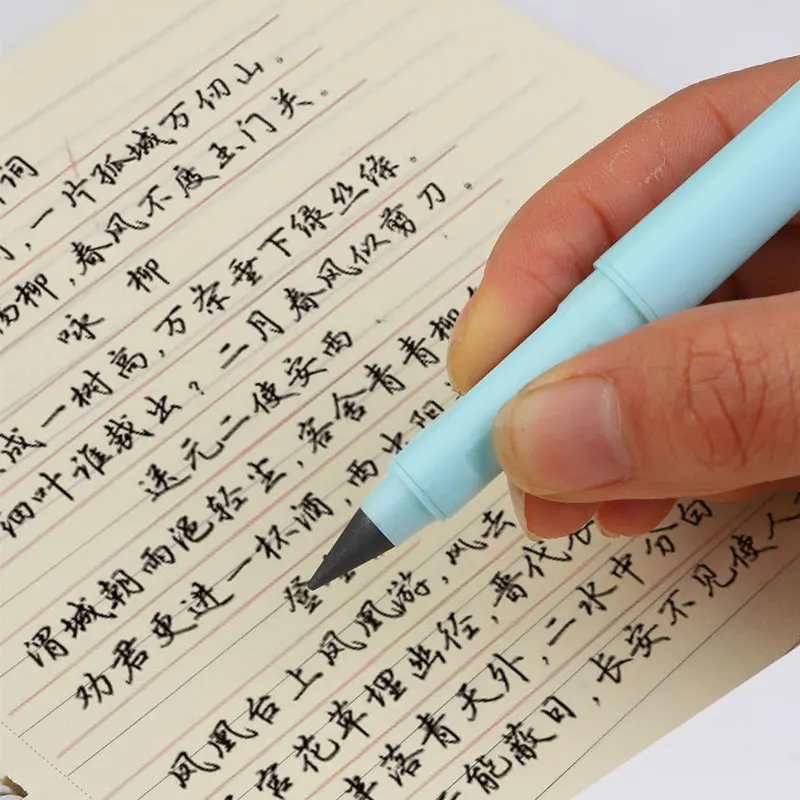 词
,一片孤城万仞山。
柳,春风不度玉门关。
咏 柳
成一树高,万条垂下绿丝绦。
细叶谁裁出?二月春风似剪刀。
送元二使安西
渭城朝雨浥轻尘,客舍青青柳
劝君更进一杯酒,西出阳
登
凤凰台上凤凰游,凤去
宫花草埋幽径,晋代衣
半落青天外,二水中分白
能蔽日,长安不见使人